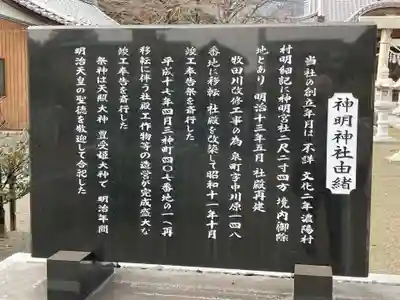 神明神社由緒
当社の創立年月は不詳 文化二年濃陽村
村明細記に神明宮社二尺二寸四方 境内御除
地とあり 明治十三年五月 社殿再建
牧田川改修工事の為 泉町字中川原一四八
番地に移転 社殿を改築して昭和十一年十月
竣工奉告祭を斎行した
平成十七年四月三神町四〇七番地の一へ再
移転に伴う社殿工作物等の造営が完成盛大な
竣工奉告を斎行した
祭神は天照大神 豊受姫大神で 明治年間
明治天皇の聖徳を歓迎して合祀した